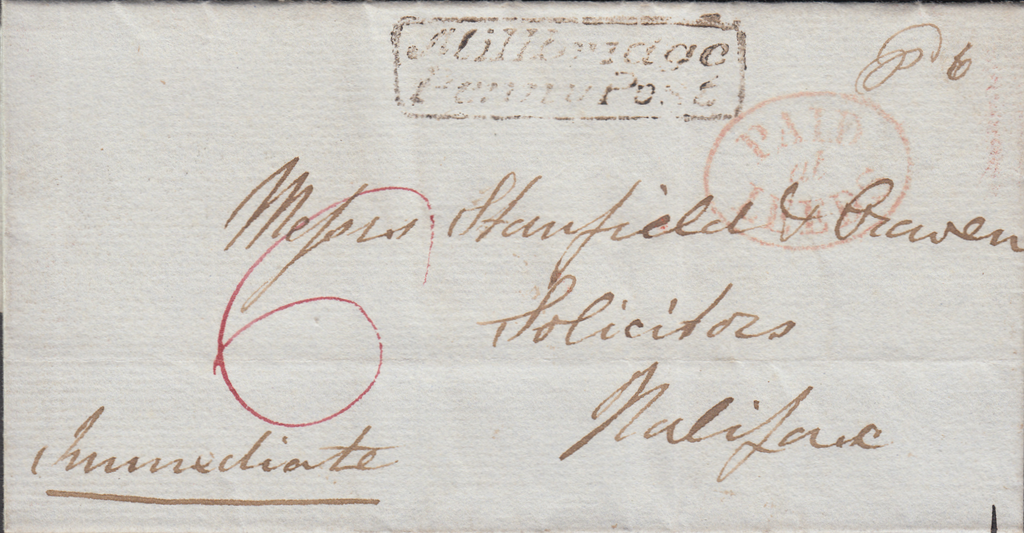 Millbridge
Penny Post
Pd 6
PAID
at
LEEDS
Messrs Stanfield & Craven
6
Solicitors
Halifax
Immediate